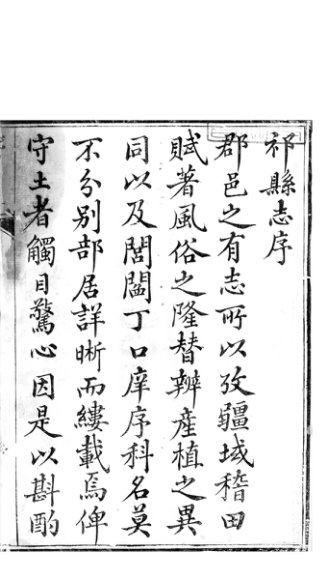 祁縣志序
郡邑之有志所以攷疆域稽田
賦著風俗之隆替辨產植之異
同以及閭閻丁口庠序科名莫
不分別部居詳晰而縷載焉俾
守土者觸目驚心因是以斟酌